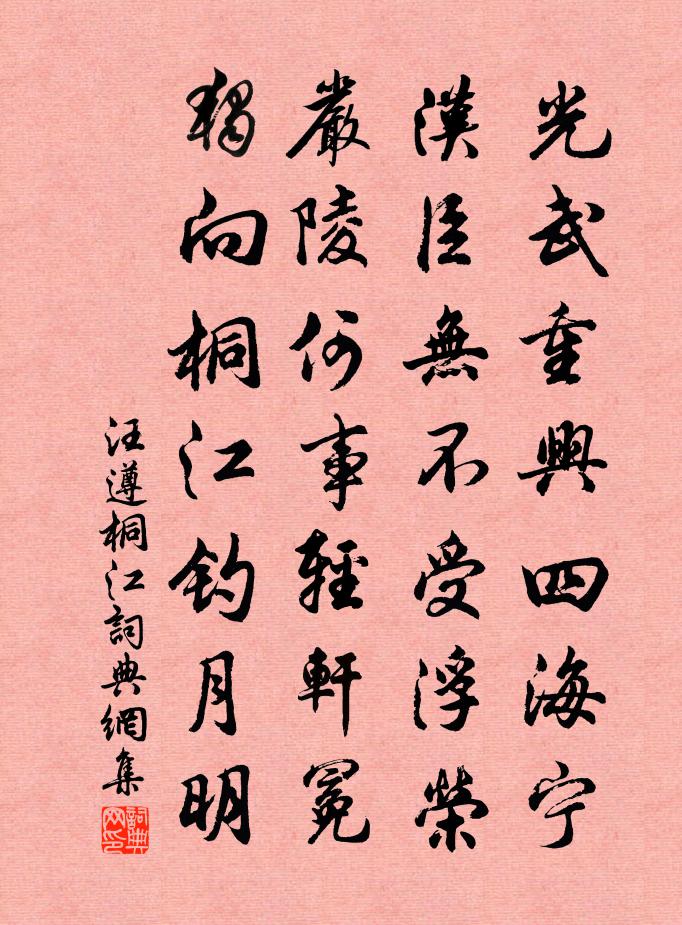 光武重興四海宁
漢臣無不受浮榮
嚴陵何事輕軒冕
獨向桐江钓月明
汪遵桐江詞典網集
詞典网印